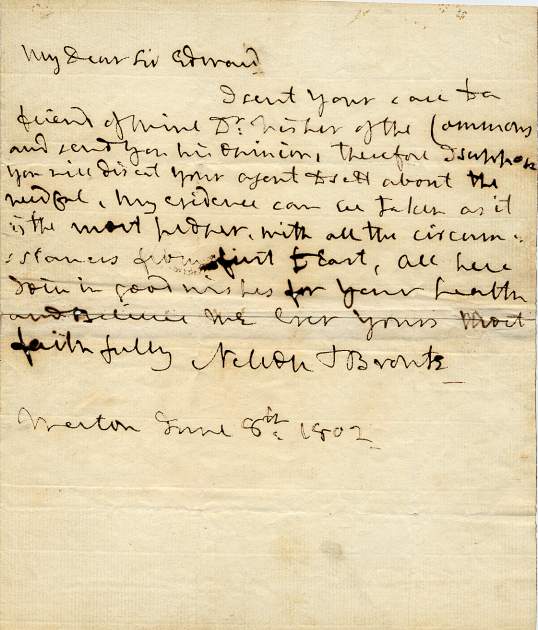 My Dear Sir Edward
I sent your case to a
friend of mine Dr. Fisher of the Commons
and send you his opinion, therefore I suppose
you will direct your agent to sett about the
needful, my evidence can be taken as it
is the most proper, with all the circum-
stances from first to last, all here
Join in good wishes for your health
and Believe me Ever yours most
faithfully Nelson & Bronte
Merton June 8th: 1802